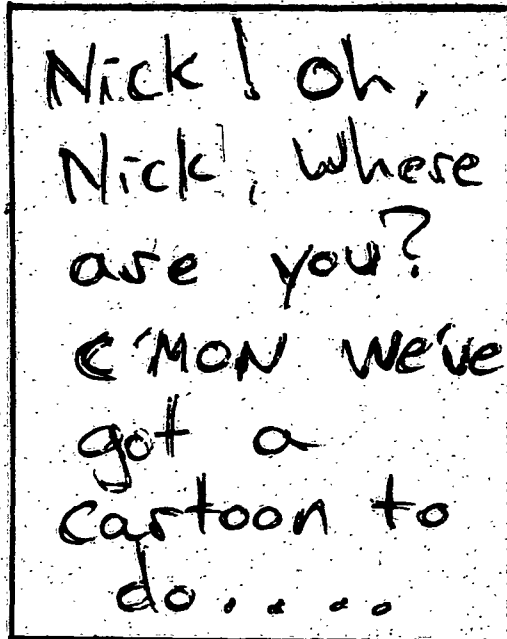 Nick! Oh,
Nick, Where
are you?
C'MON We've
got a
cartoon to
do....